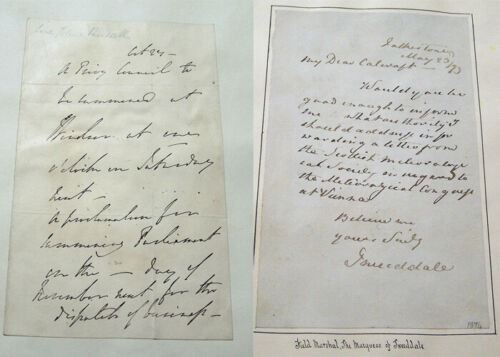 A Privy Council to
be summoned at
Windsor at one
o'clock on Saturday
next –
A proclamation for
summoning Parliament
on the — day of
November next for the
dispatch of business –
May 23/73
My Dear Calcraft –
Would you be
good enough to inform
me what authority I
should address in for
warding a letter from
the Scottish Meteorologi
cal Society in regard to
the Meteorological Congress
at Vienna
Believe me
yours truly
Tweeddale
1876
Field Marshal, The Marquess of Tweeddale